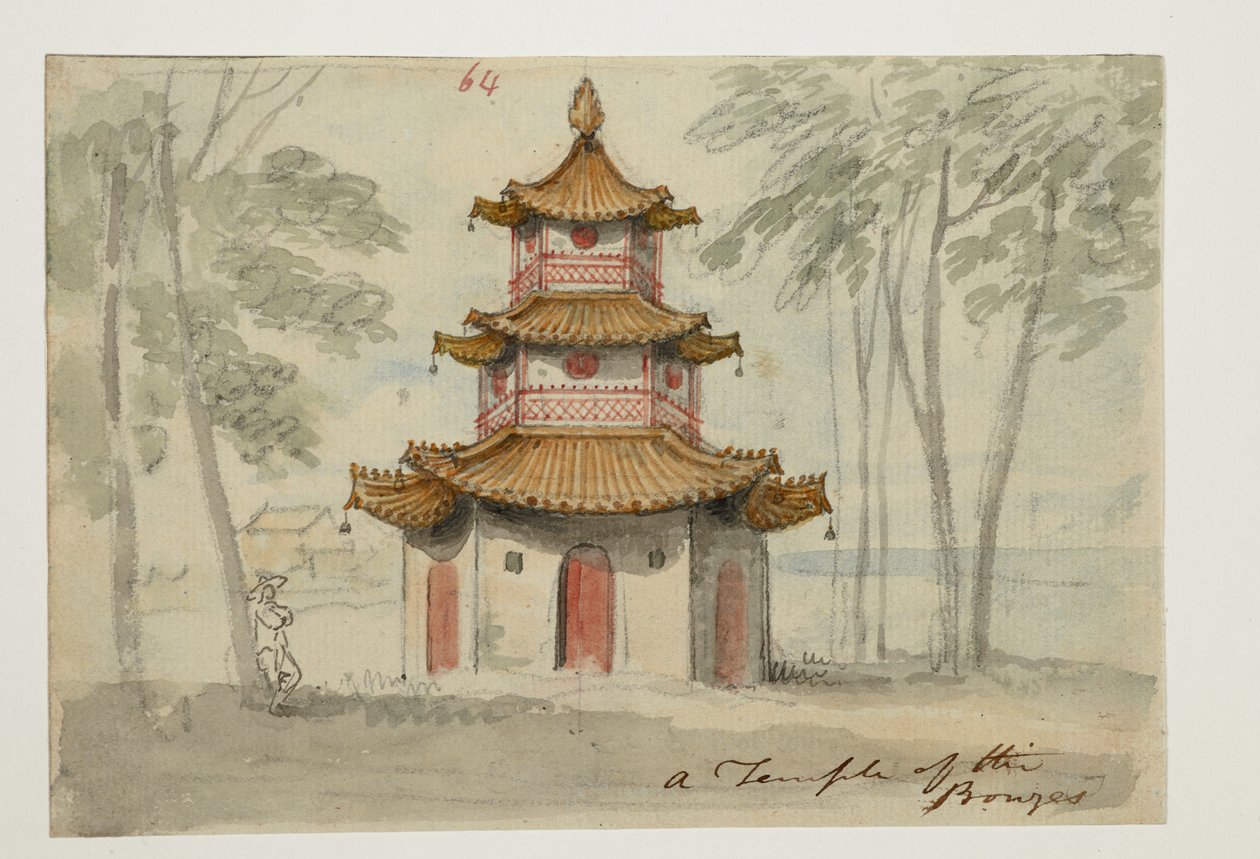 64
a Temple of the
Bonzes